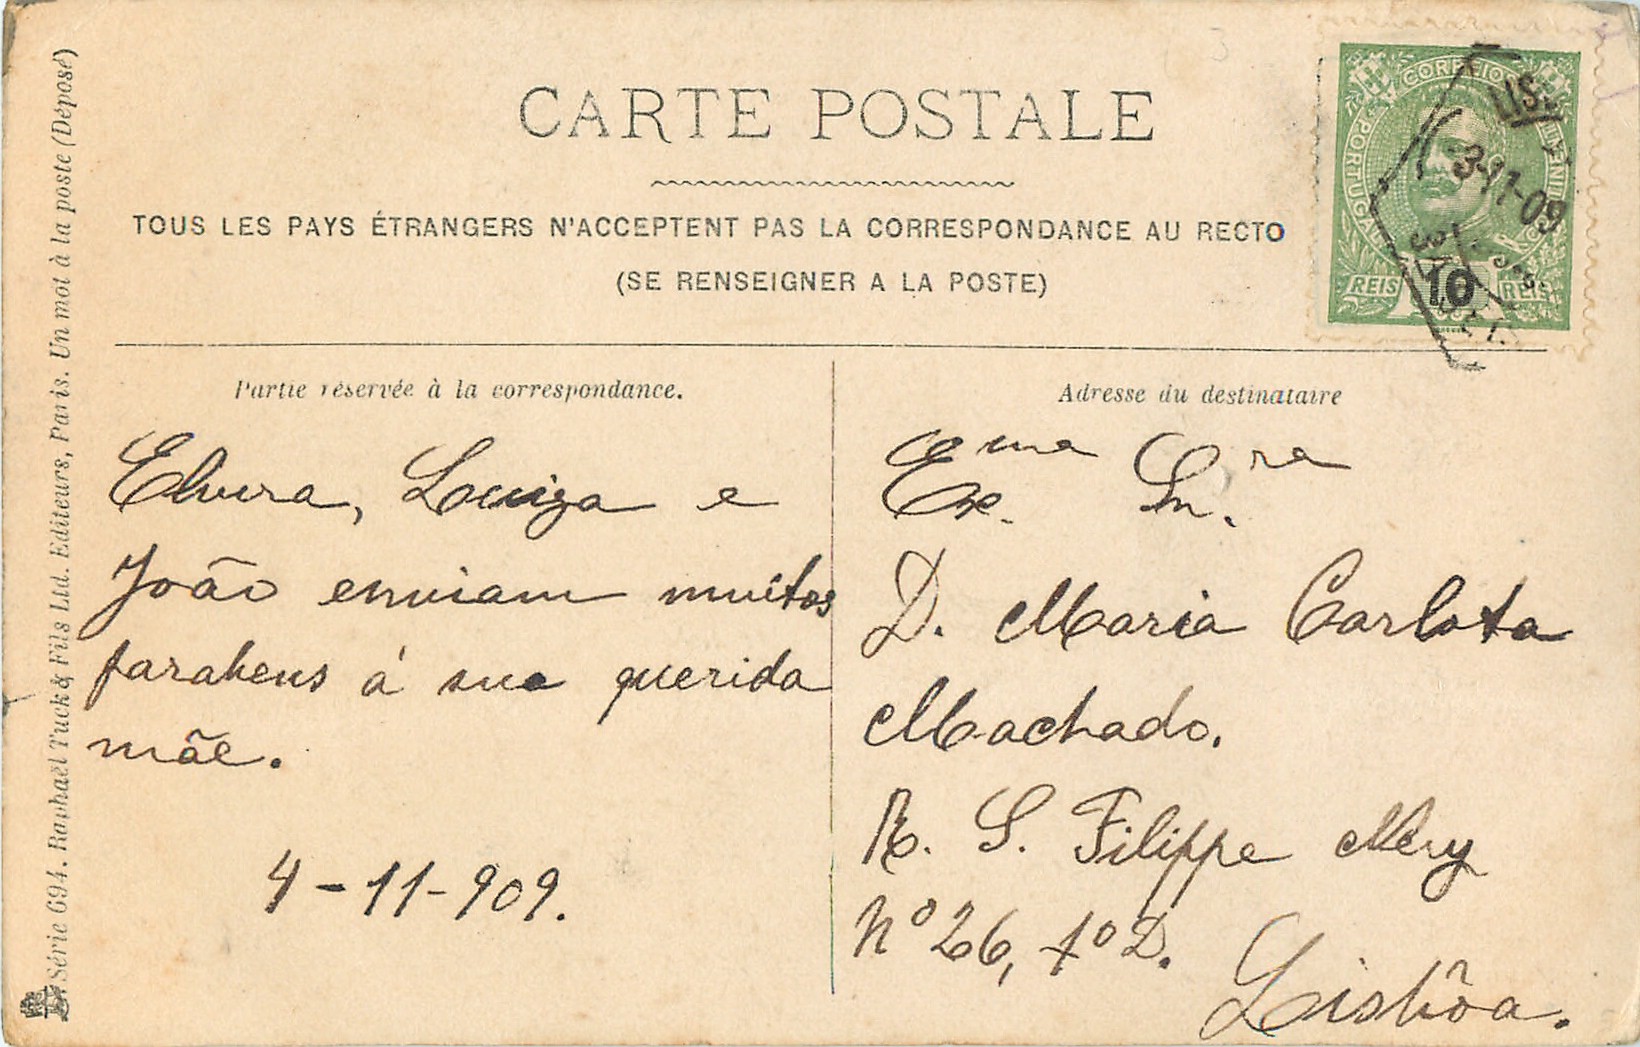 CARTE POSTALE
TOUS LES PAYS ÉTRANGERS N'ACCEPTENT PAS LA CORRESPONDANCE AU RECTO
(SE RENSEIGNER A LA POSTE)
Partie réservée à la correspondance.
Elvira, Luiza e
João enviam muitos
parabens á sua querida
mãe.
4-11-909.
Adresse du destinataire
Exma Snra.
D. Maria Carlota
Machado.
R. S. Filippe Nery
Nº 26, 1º D.
Lisbôa.
CORREIOS
PORTUGAL
REIS 10 REIS
3-11-09
Série 694. Raphaël Tuck & Fils Ltd. Editeurs, Paris. Un mot à la poste (Déposé)